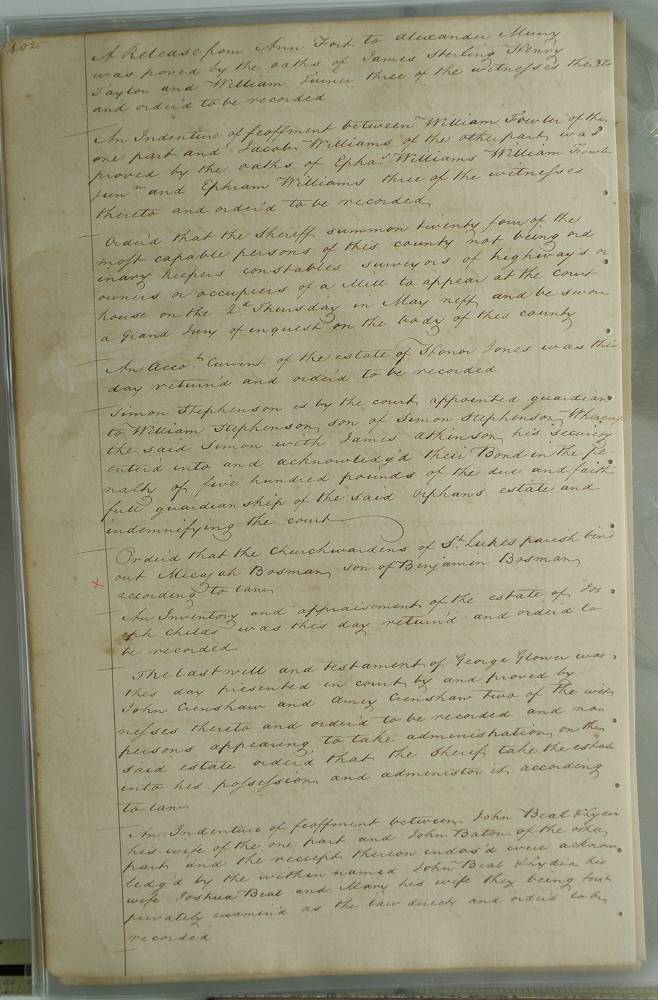 402
A Release from Ann Fort to Alexander Murry
was proved by the oaths of James Sterling Henry
Taylor and William Turner three of the witnesses thereto
and order'd to be recorded
An Indenture of feoffment between William Fowler of the
one part and Jacob Williams of the other part was
proved by the oaths of Epha. Williams William Fowler
Junr. and Ephram Williams three of the witnesses
thereto and order'd to be recorded
Order'd that the Sheriff summon twenty four of the
most capable persons of this county not being ord
inary keepers constables surveyors of highway's or
owners or occupiers of a Mill to appear at the court
house on the 2d. Thursday in May next and be sworn
a Grand Jury of inquest on the body of this county
An Accot. Current of the estate of Honor Jones was this
day return'd and order'd to be recorded
Simon Stephenson is by the court appointed guardian
to William Stephenson son of Simon Stephenson Whereup
the said Simon with James Atkinson his security
enter'd into and acknowledg'd their Bond in the pe
nalty of five hundred pounds of the due and faith
full guardianship of the said Orphans estate and
indemnifying the court
Order'd that the Churchwardens of St. Lukes parish bind
out Micajah Bosman son of Benjamin Bosman
x according to law
An Inventory and appraisement of the estate of Jos
eph Childs was this day return'd and order'd to
be recorded
The last will and testament of George Glover was
this day presented in court by and proved by
John Crenshaw and Amey Crenshaw two of the wit
nesses thereto and order'd to be recorded and no
persons appearing to take administration on the
said estate order'd that the Sherif take the estate
into his possession and administer it according
to law
An Indenture of feoffment between John Beal & Lydia
his wife of the one part and John Baton of the other
part and the receipt thereon indos'd were acknow
ledg'd by the within named John Beal & Lydia his
wife Joshua Beal and Mary his wife they being first
privately examin'd as the law directs and order'd to be
recorded